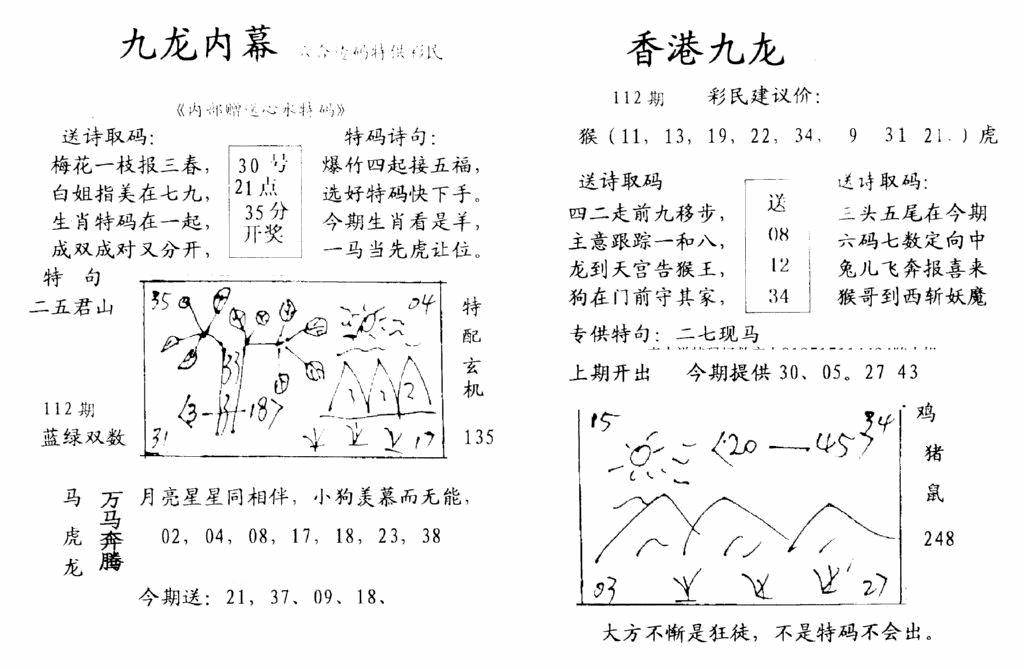 九龙内幕
码特供彩民
《内部赠送心水特码》
送诗取码：
梅花一枝报三春，
白姐指美在七九，
生肖特码在一起，
成双成对又分开，
30 号
21点
35分
开奖
特码诗句：
爆竹四起接五福，
选好特码快下手。
今期生肖看是羊，
一马当先虎让位。
特 句
二五君山
112期
蓝绿双数
35
04
33
31
17
特配玄机
135
马虎龙
万马奔腾
月亮星星同相伴，小狗羡慕而无能，
02，04，08，17，18，23，38
今期送：21，37、09、18、
香港九龙
112期 彩民建议价：
猴（11，13，19，22，34， 9 31 21.）虎
送诗取码
四二走前九移步，
主意跟踪一和八，
龙到天宫告猴王，
狗在门前守其家，
送
08
12
34
送诗取码：
三头五尾在今期
六码七数定向中
兔儿飞奔报喜来
猴哥到西斩妖魔
专供特句：二七现马
上期开出 今期提供 30、05。27 43
15
34
〈20—45〉
03
27
鸡
猪
鼠
248
大方不惭是狂徒，不是特码不会出。